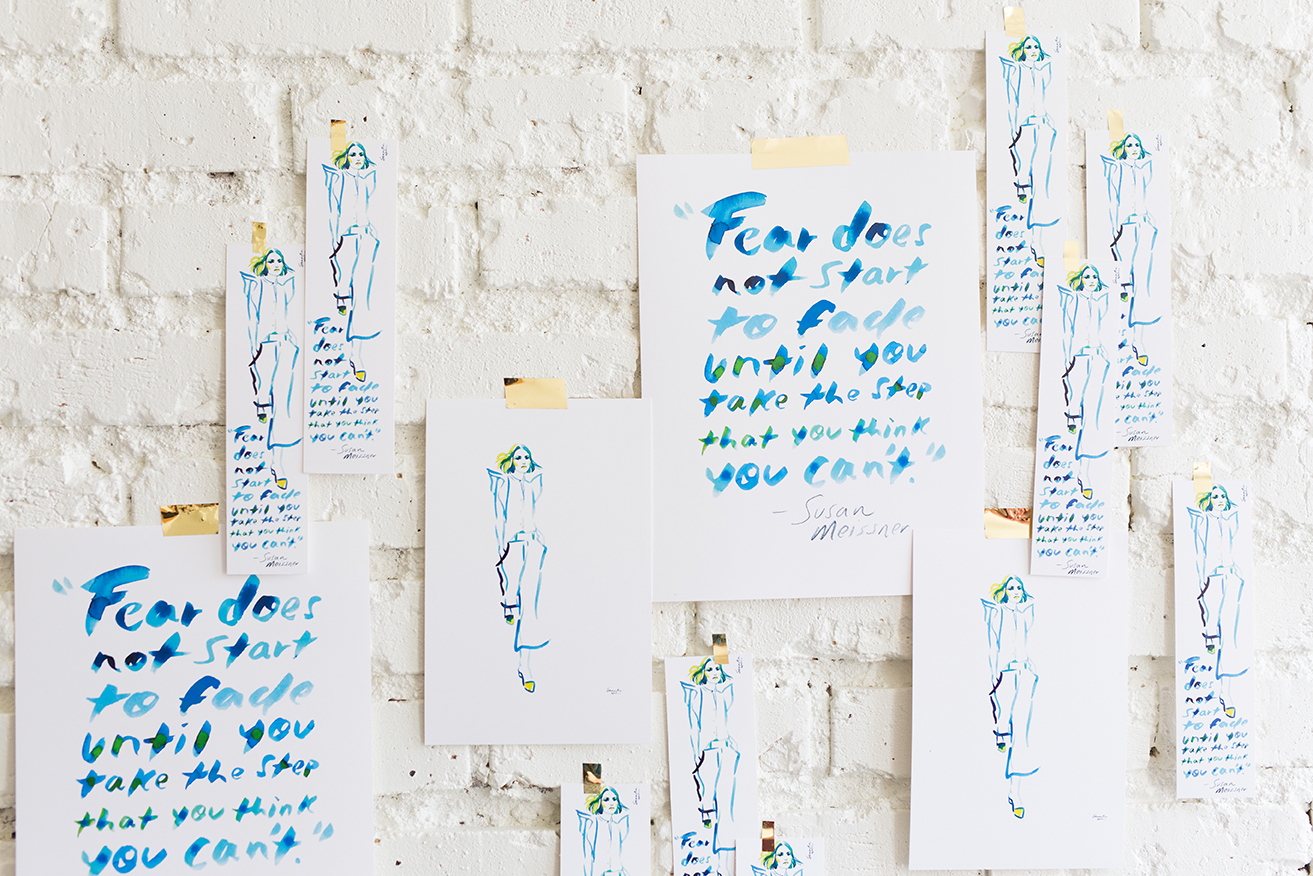 "Fear
does
not
start
to fade
until you
take the step
that you think
you can't."
- Susan
Meissner
"Fear
does
not
start
to fade
until you
take the step
that you think
you can't."
- Susan
Meissner
"Fear does
not start
to fade
until you
take the step
that you think
you can't."
"Fear does
not start
to fade
until you
take the step
that you think
you can't."
- Susan
Meissner
"Fear
does
not
start
to
until
take the
that you
you can't
- Susan
you
the step
you think
can't."
"Fear
does
not
start
to fade
until you
take the step
that you think
you can't."
- Susan
Meissner
"Fear
does
not
start
to fade
until you
take the step
that you think
you can't."
- Susan
Meissner
"Fear
does